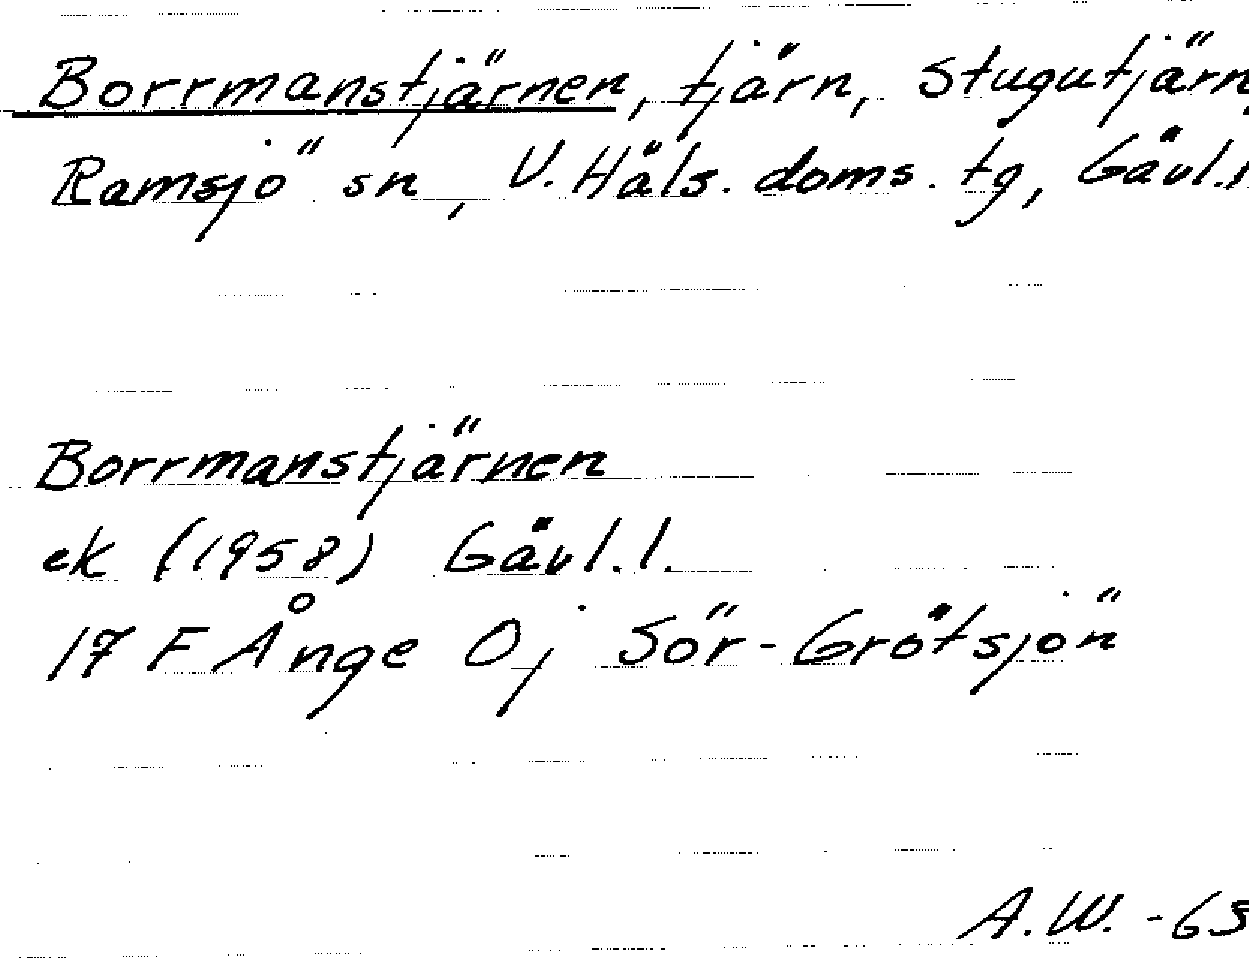 Borrmanstjärnen, tjärn, Stugutjärn,
Ramsjö sn, V. Häls. doms. tg, Gävl.l
Borrmanstjärnen
ek (1958) Gävl.l.
17 F Ånge Oj Sör-Grötsjön
A.W. -65